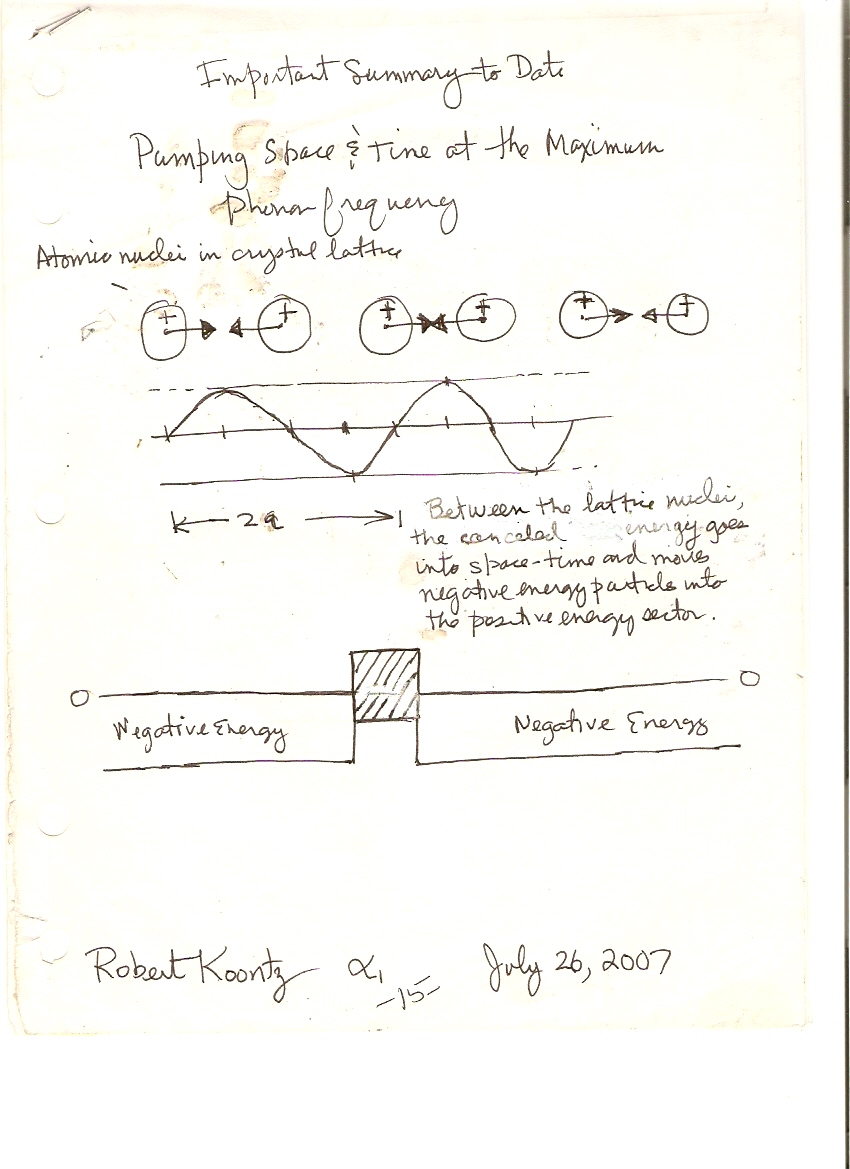 Important Summary to Date
Pumping Space & Time at the Maximum
phonon frequency
Atomic nuclei in crystal lattice
+ + + + + +
2a
Between the lattice nuclei,
the canceled energy goes
into space-time and moves
negative energy particle into
the positive energy sector.
O O
Negative Energy Negative Energy
Robert Koontz α1 July 26, 2007
-15-